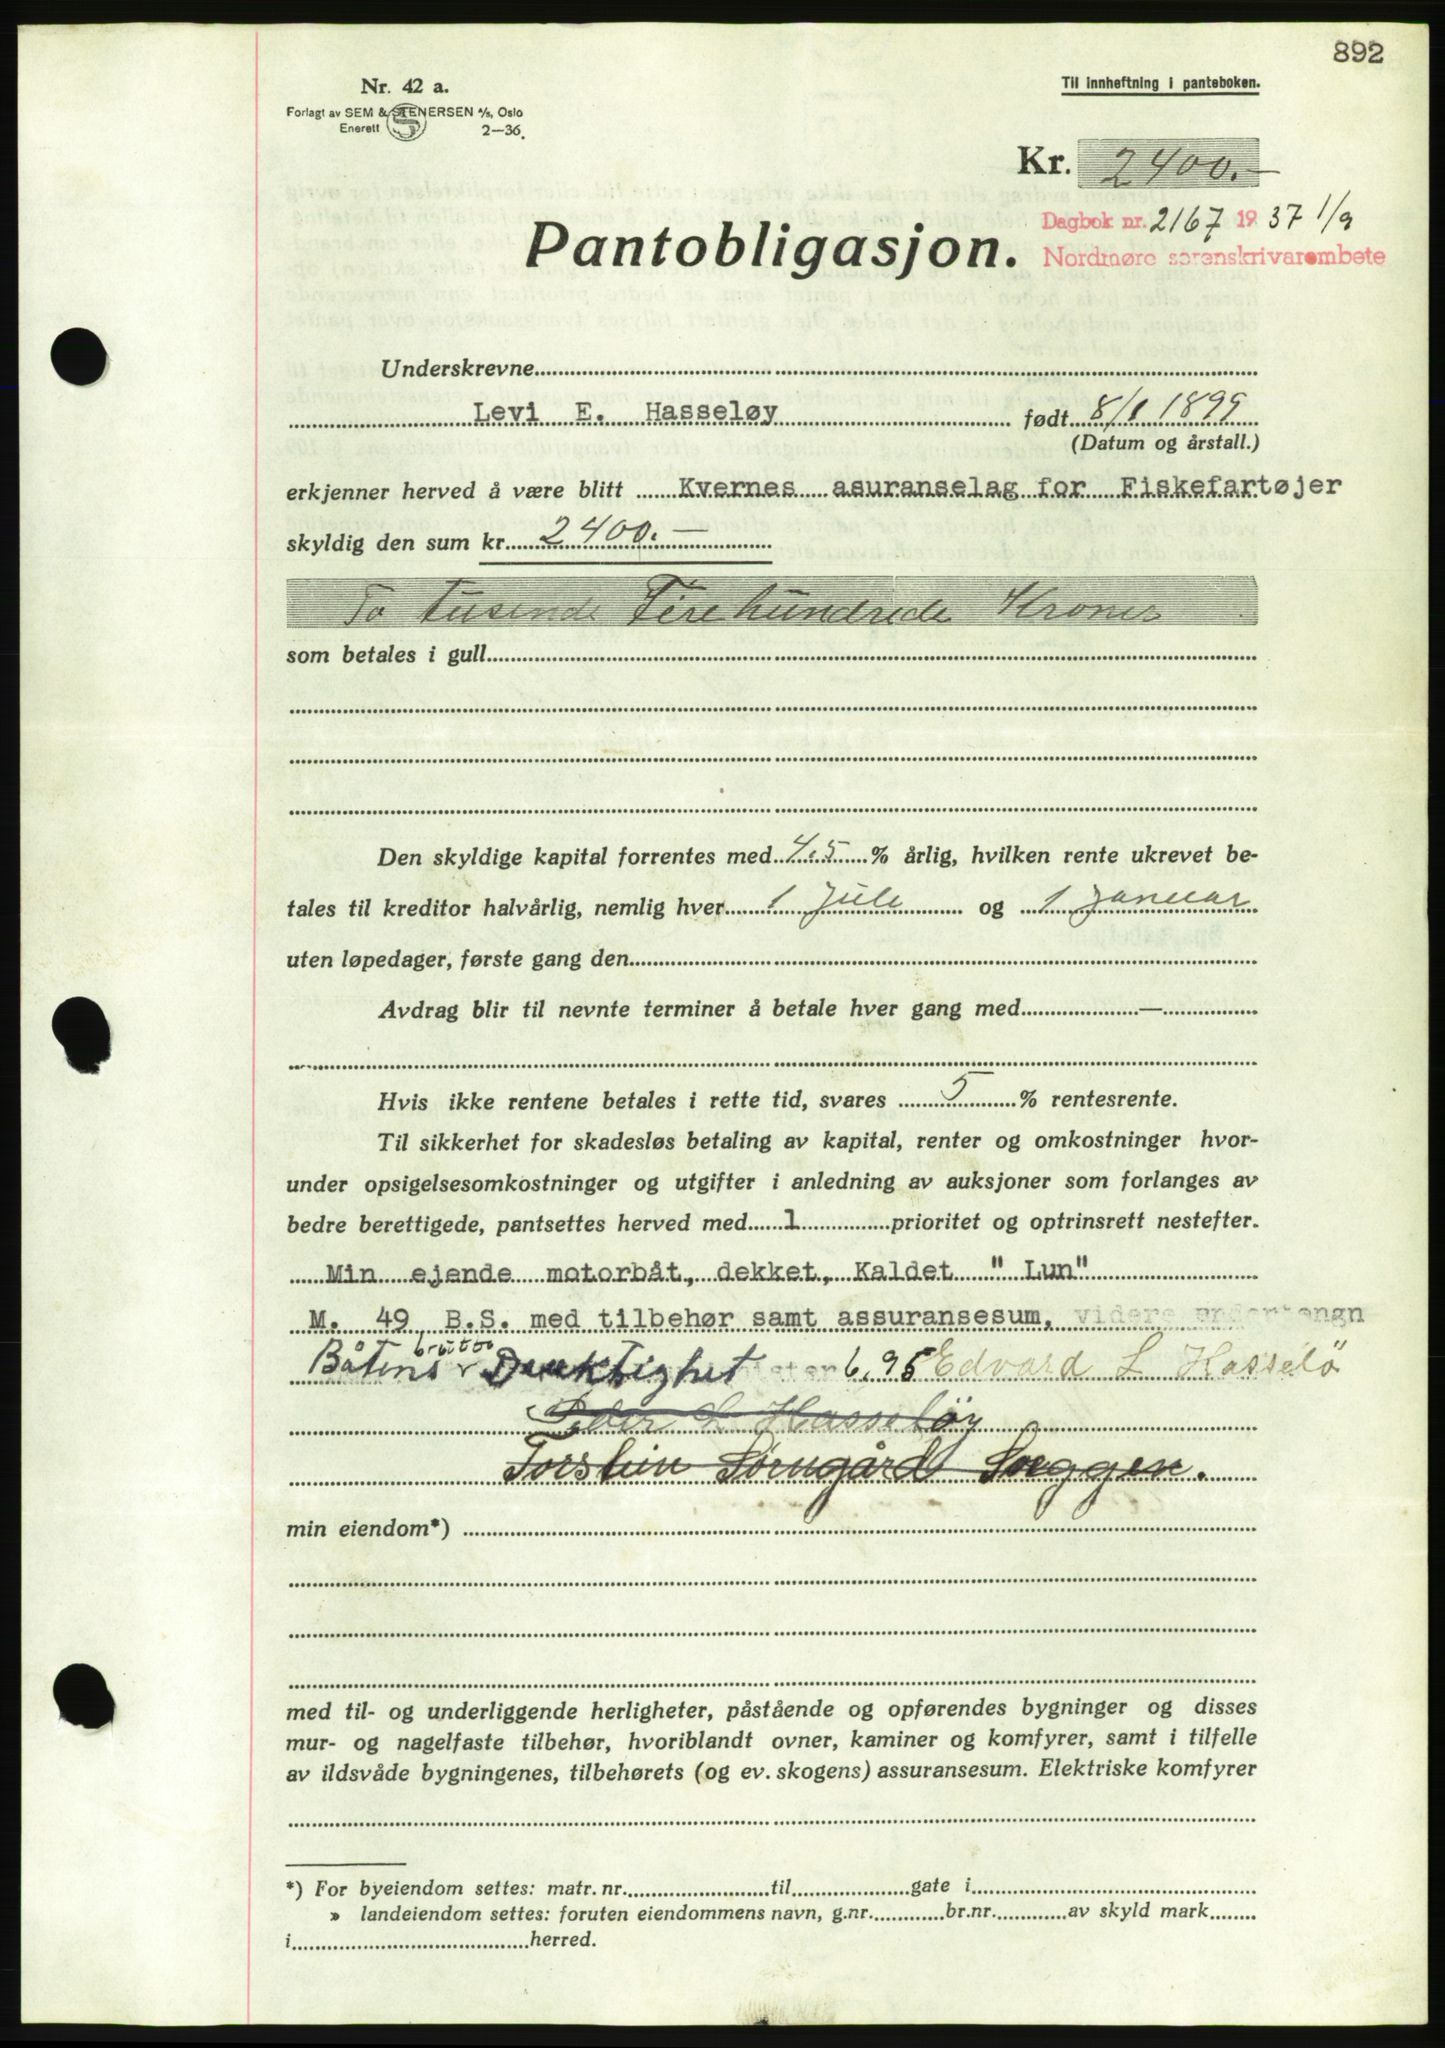 892
Nr. 42 a.
Til innheftning i panteboken.
Forlagt av SEM & STENERSEN A/S, Oslo
Enerett 2—36.
Kr. 2400.—
Dagbok nr. 2167 1937 1/9
Nordmøre sorenskrivarembete
Pantobligasjon.
Underskrevne
Levi E. Hasseløy født 8/1 1899
(Datum og årstall.)
erkjenner herved å være blitt Kvernes asuranselag for Fiskefartøjer
skyldig den sum kr. 2400.—
To tusende Fire hundrede Kroner
som betales i gull
Den skyldige kapital forrentes med 4.5 % årlig, hvilken rente ukrevet be-
tales til kreditor halvårlig, nemlig hver 1 Juli og 1 Januar
uten løpedager, første gang den
Avdrag blir til nevnte terminer å betale hver gang med —
Hvis ikke rentene betales i rette tid, svares 5 % rentesrente.
Til sikkerhet for skadesløs betaling av kapital, renter og omkostninger hvor-
under opsigelsesomkostninger og utgifter i anledning av auksjoner som forlanges av
bedre berettigede, pantsettes herved med 1 prioritet og optrinsrett nestefter.
Min ejende motorbåt, dekket, Kaldet " Lun"
M. 49 B.S. med tilbehør samt assuransesum, videre
brutto
Båtens Dræktighet 6,95 Edvard L Hasselö
Peder L Hasseløy
Torstein Sørngård Soggen.
min eiendom*)
med til- og underliggende herligheter, påstående og opførendes bygninger og disses
mur- og nagelfaste tilbehør, hvoriblandt ovner, kaminer og komfyrer, samt i tilfelle
av ildsvåde bygningenes, tilbehørets (og ev. skogens) assuransesum. Elektriske komfyrer
*) For byeiendom settes: matr. nr. til gate i
» landeiendom settes: foruten eiendommens navn, g.nr. br.nr. av skyld mark
i herred.